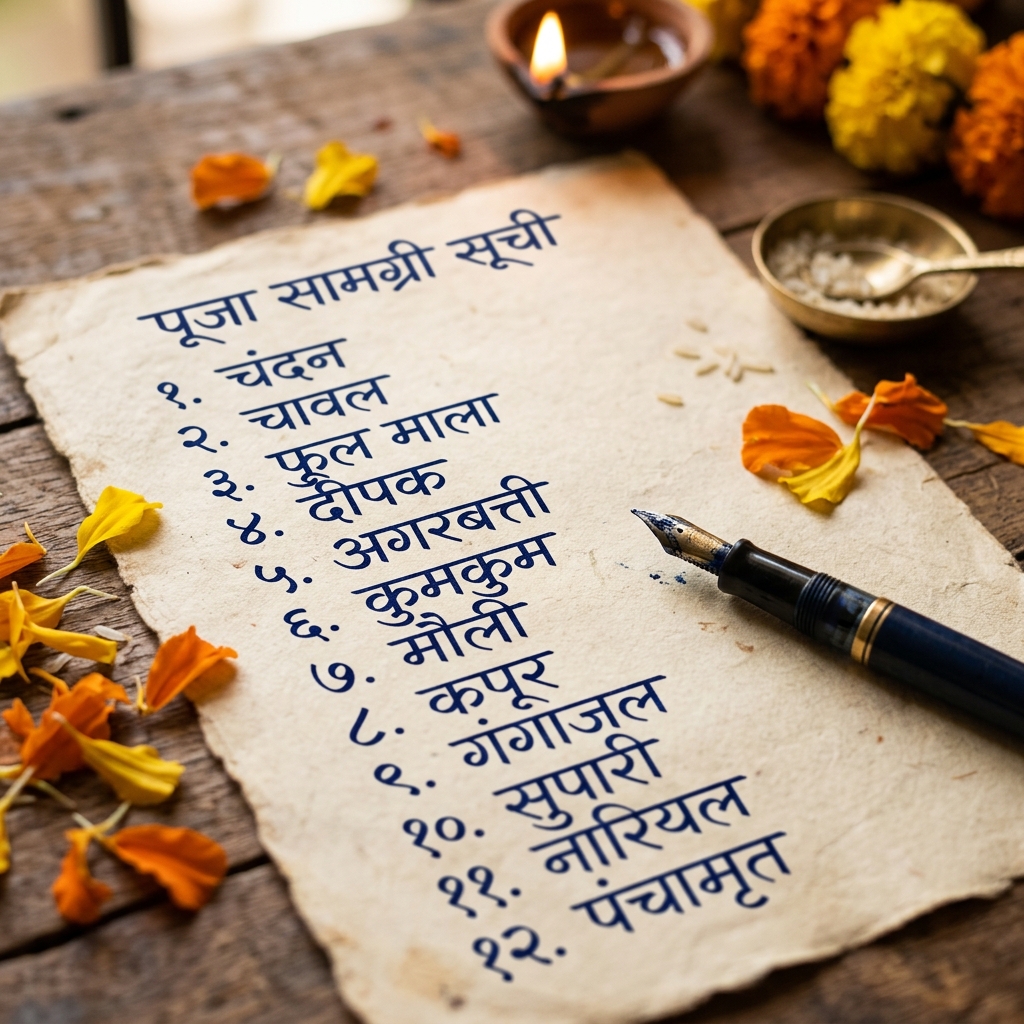 पूजा सामग्री सूची
१. चंदन
२. चावल
३. फूल माला
४. दीपक
५. अगरबत्ती
६. कुमकुम
७. मौली
८. कपूर
९. गंगाजल
१०. सुपारी
११. नारियल
१२. पंचामृत